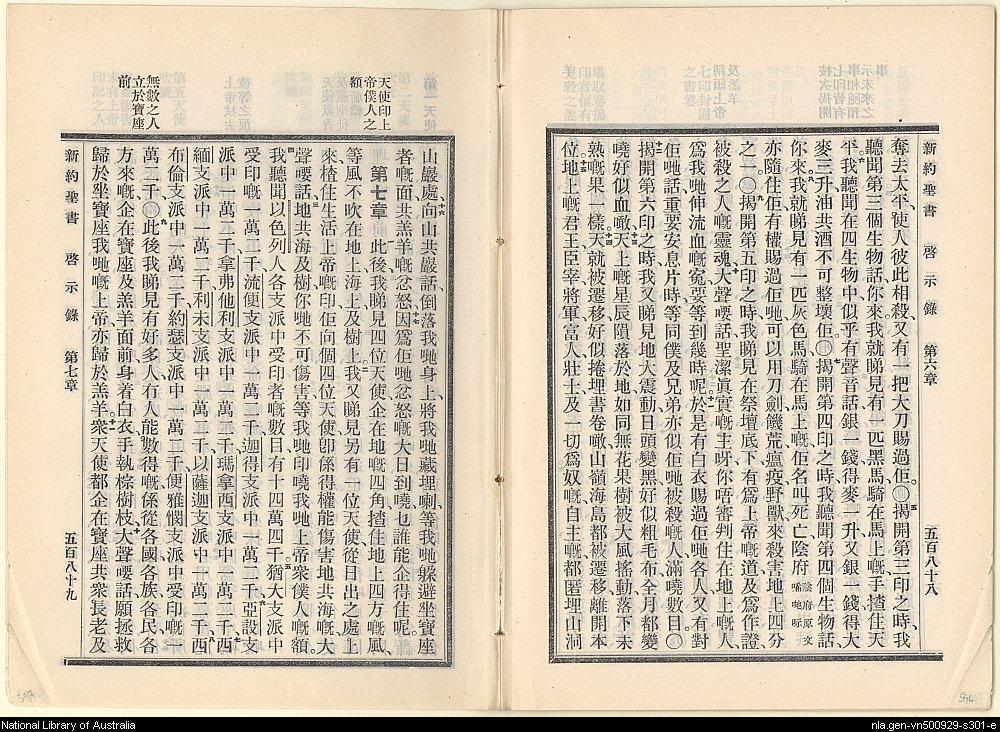 新約聖書 啓示錄 第六章 五百八十八
奪去太平使人彼此相殺又有一把大刀賜過佢○揭開第三印之時我
聽聞第三個生物話你來我就睇見有一匹黑馬騎在馬上嘅手揸住天
平我聽聞在四生物中似乎有聲音話銀一錢得麥一升又銀一錢得大
麥三升油共酒不可整壞佢○揭開第四印之時我聽聞第四個生物話
你來我就睇見有一匹灰色馬騎在馬上嘅佢名叫死亡陰府陰府原文
亦隨住佢有權賜過佢哋可以用刀劍饑荒瘟疫野獸來殺害地上四分
之一○揭開第五印之時我睇見在祭壇底下有爲上帝嘅道及爲作證
被殺之人嘅靈魂大聲嘤話聖潔眞實嘅主呀你唔審判住在地上嘅人
爲我哋伸流血嘅寃要等到幾時呢於是有白衣賜過佢哋各人又有對
佢哋話重要安息片時等同僕及兄弟亦似佢哋被殺嘅人滿嘵數目○
揭開第六印之時我又睇見地大震動日頭變黑好似粗毛布全月都變
嘵好似血噉天上嘅星辰隕落於地如同無花果樹被大風搖動落下未
熟嘅果一樣天就被遷移好似捲埋書卷噉山嶺海島都被遷移離開本
位地上嘅君王臣宰將軍富人壯士及一切爲奴嘅自主嘅都匿埋山洞
天使印上
帝僕人之
額
無數之人
立於寶座
前
山巖處向山共巖話倒落我哋身上將我哋藏埋喇等我哋躱避坐寶座
者嘅面共羔羊嘅忿怒因爲佢哋忿怒嘅大日到嘵乜誰能企得住呢
第七章 此後我睇見四位天使企在地嘅四角揸住地上四方嘅風
等風不吹在地上海上及樹上我又睇見另有一位天使從日出之處上
來揸住生活上帝嘅印佢向個四位天使卽係得權能傷害地共海嘅大
聲嘤話地共海及樹你哋不可傷害等我哋印嘵我哋上帝衆僕人嘅額
我聽聞以色列人各支派中受印者嘅數目有十四萬四千猶大支派中
受印嘅一萬二千流便支派中一萬二千迦得支派中一萬二千亞設支
派中一萬二千拿弗他利支派中一萬二千瑪拿西支派中一萬二千西
緬支派中一萬二千利未支派中一萬二千以薩迦支派中一萬二千西
布倫支派中一萬二千約瑟支派中一萬二千便雅憫支派中受印嘅一
萬二千○此後我睇見有好多人有人能數得嘅係從各國各族各民各
方來嘅企在寶座及羔羊面前身着白衣手執棕樹枝大聲嘤話願拯救
歸於坐寶座我哋嘅上帝亦歸於羔羊衆天使都企在寶座共衆長老及
新約聖書 啓示錄 第七章 五百八十九
National Library of Australia
nla.gen-vn500929-s301-e